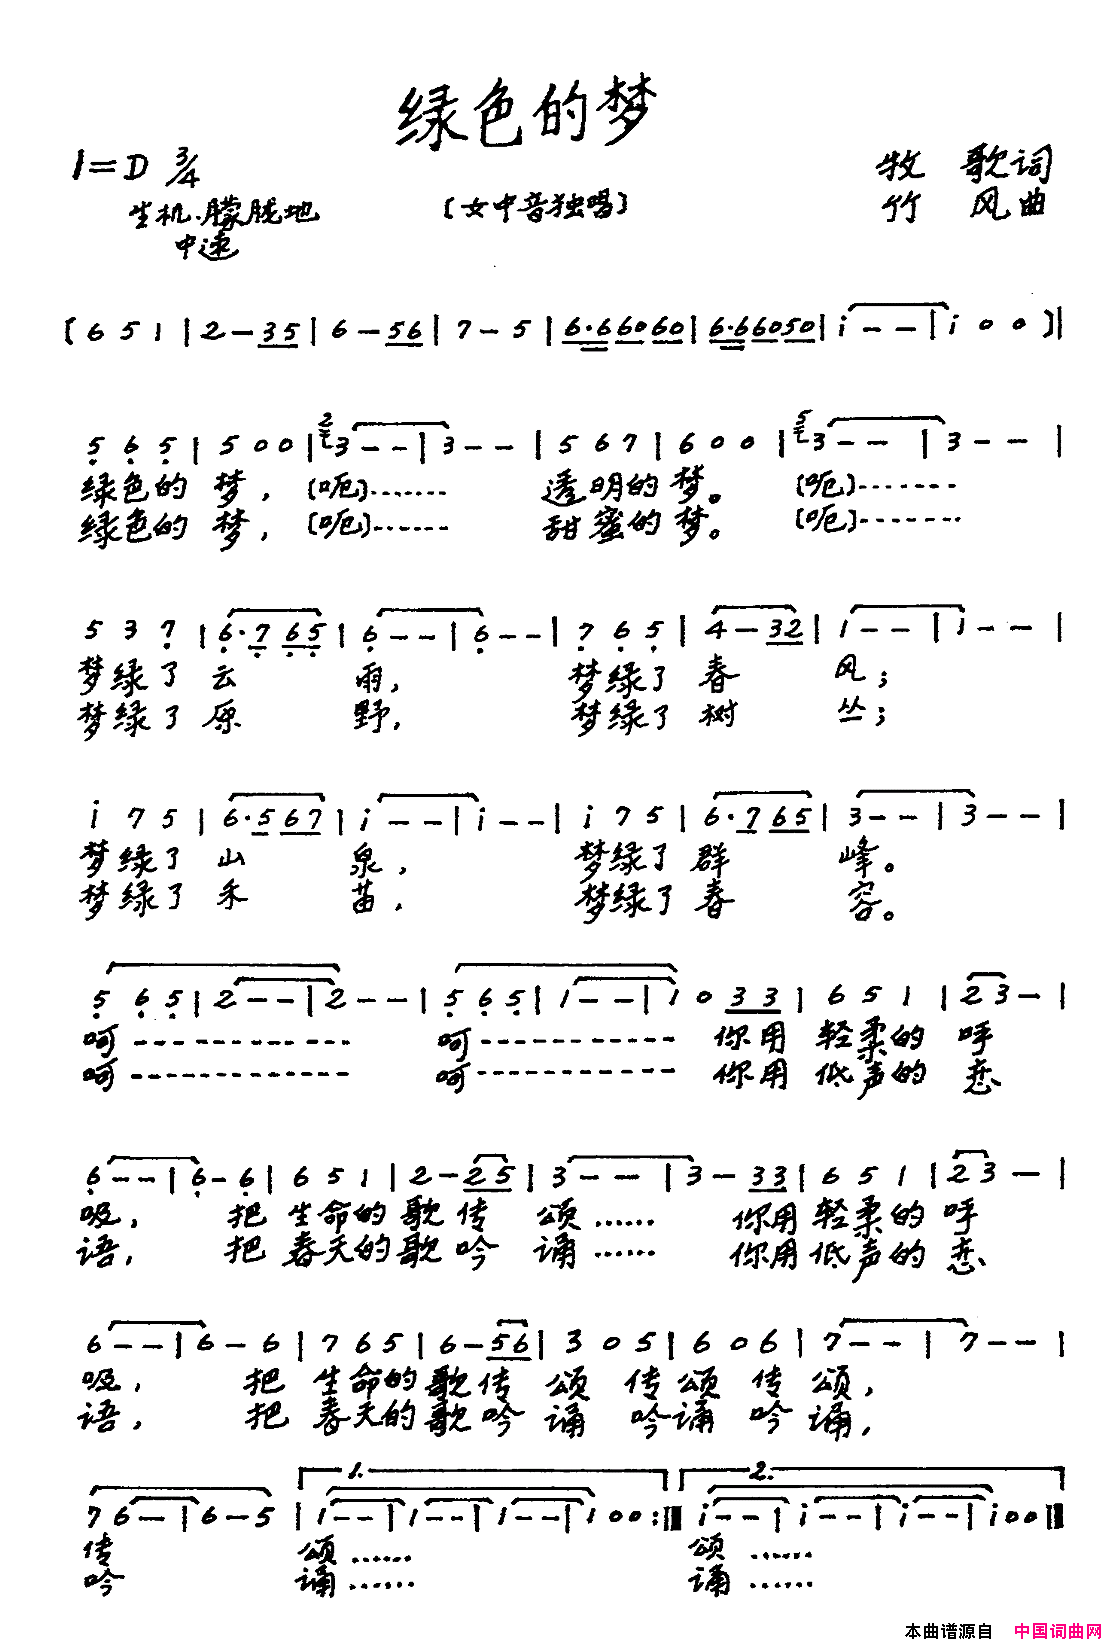 绿色的梦
1=D 3/4
牧 歌词
生机.朦胧地
(女中音独唱)
竹 风曲
中速
(6 5 1 | 2 - 35 | 6 - 56 | 7 - 5 | 6·66060 | 6·66050 | i - - | i 0 0)||
5 6 5 | 5 0 0 | 2 3 - - | 3 - - | 5 6 7 | 6 0 0 | 5 3 - - | 3 - - |
绿色的 梦, (呃)……. 透明的 梦。 (呃)…….
绿色的 梦, (呃)……. 甜蜜的 梦。 (呃)…….
5 3 7 | 6·7 65 | 6 - - | 6 - - | 7 6 5 | 4 - 32 | 1 - - | 1 - - |
梦绿了 云 雨, 梦绿了 春 风;
梦绿了 原 野, 梦绿了 树 丛;
i 7 5 | 6·5 67 | i - - | i - - | i 7 5 | 6·7 65 | 3 - - | 3 - - |
梦绿了 山 泉, 梦绿了 群 峰。
梦绿了 禾 苗, 梦绿了 春 容。
5 6 5 | 2 - - | 2 - - | 5 6 5 | 1 - - | 1 0 33 | 6 5 1 | 23 - |
呵 - - - - - - - - - - - 呵 - - - - - - - - - - 你用 轻柔的 呼
呵 - - - - - - - - - - - 呵 - - - - - - - - - - 你用 低声的 恋
6 - - | 6 - 6 | 6 5 1 | 2 - 25 | 3 - - | 3 - 33 | 6 5 1 | 23 - |
吸, 把 生命的 歌传 颂…… 你用 轻柔的 呼
语, 把 春天的 歌吟 诵…… 你用 低声的 恋
6 - - | 6 - 6 | 7 6 5 | 6 - 56 | 3 0 5 | 6 0 6 | 7 - - | 7 - - |
吸, 把 生命的 歌传 颂 传颂 传 颂,
语, 把 春天的 歌吟 诵 吟诵 吟 诵,
1. 2.
7 6 - | 6 - 5 | 1 - - | 1 - - | 1 - - | 1 0 0 :|| i - - | i - - | i - - | i 0 0 ||
传 颂…… 颂……
吟 诵…… 诵……
本曲谱源自 中国词曲网